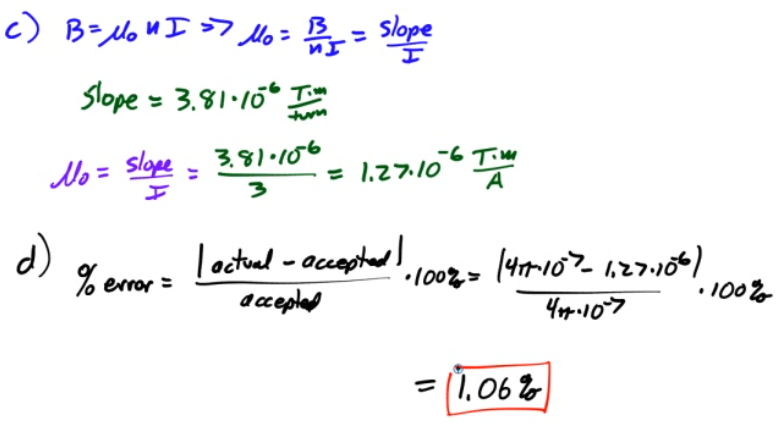 c) B = μ₀ n I => μ₀ = B/nI = slope/I
Slope = 3.81·10⁻⁶ T·m/turn
μ₀ = slope/I = 3.81·10⁻⁶/3 = 1.27·10⁻⁶ T·m/A
d) % error = |actual - accepted|/accepted ·100% = |4π·10⁻⁷ - 1.27·10⁻⁶|/4π·10⁻⁷ ·100%
= 1.06%